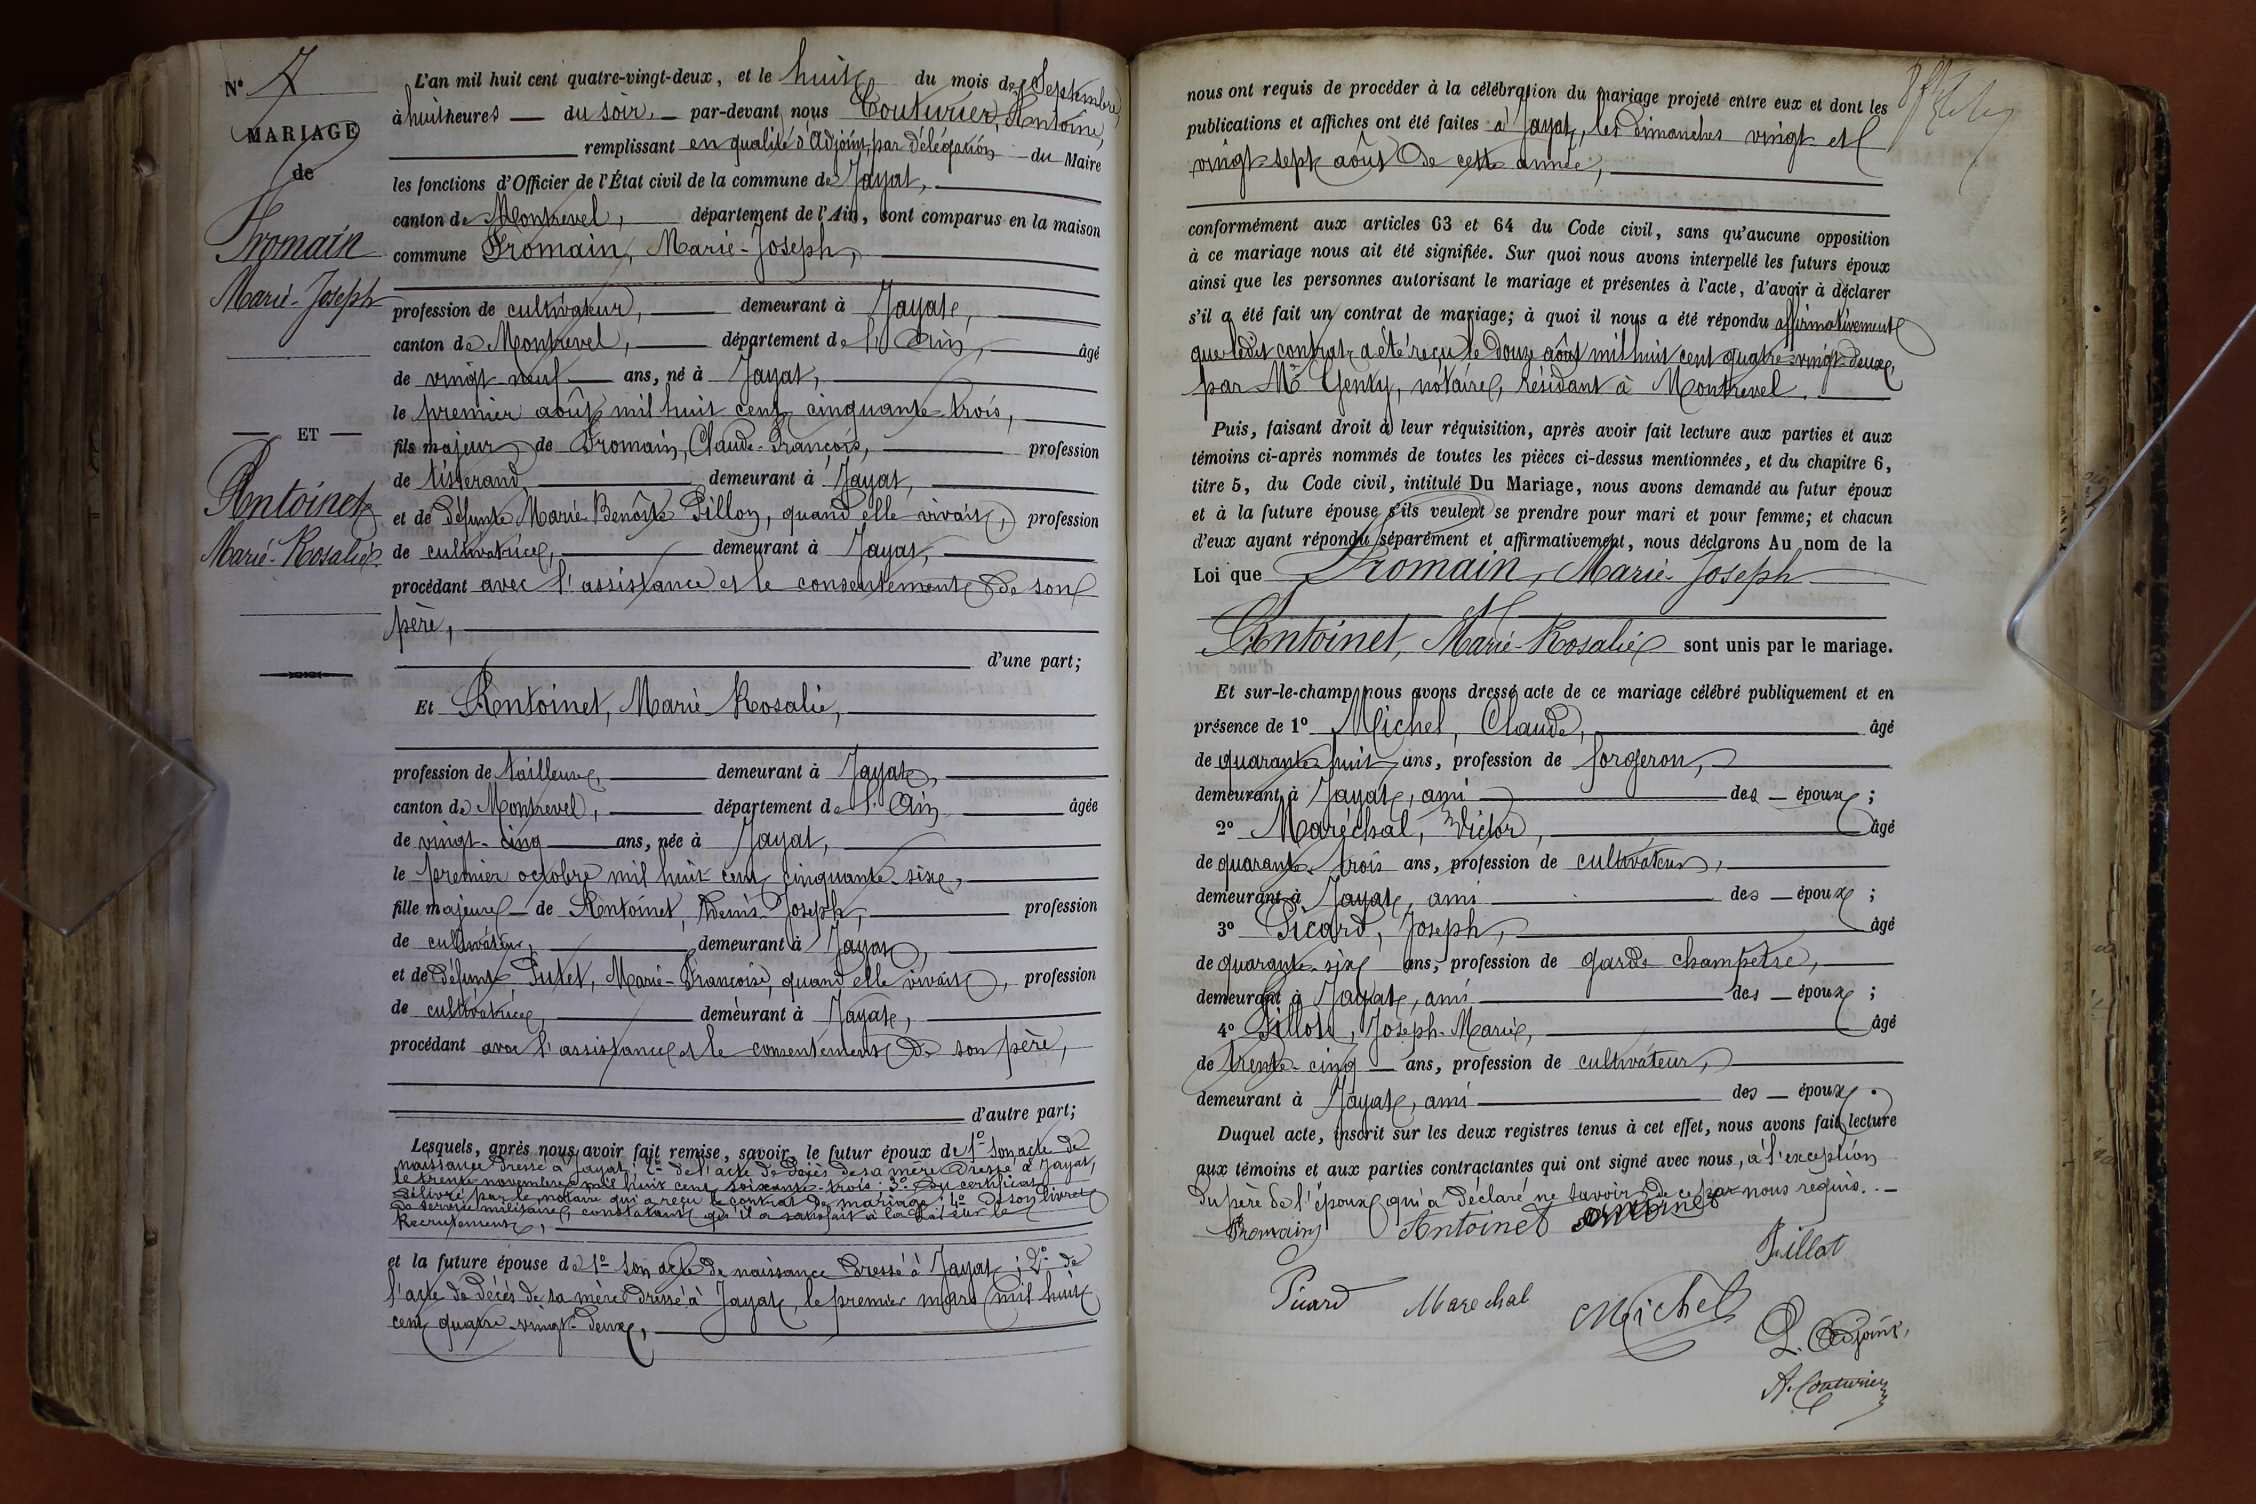 N° 7
MARIAGE
de
Fromain
Marie-Joseph
ET
Antoinet
Marie-Rosalie
L'an mil huit cent quatre-vingt-deux, et le huit du mois de Septembre,
à huit heures du soir, par-devant nous Couturier, Antoine,
remplissant en qualité d'Adjoint, par délégation du Maire
les fonctions d'Officier de l'État civil de la commune de Jayat,
canton de Montrevel, département de l'Ain, sont comparus en la maison
commune Fromain, Marie-Joseph,
profession de cultivateur, demeurant à Jayat,
canton de Montrevel, département de l'Ain, âgé
de vingt-neuf ans, né à Jayat,
le premier août mil huit cent cinquante-trois,
fils majeur de Fromain, Claude-François, profession
de tisserand, demeurant à Jayat,
et de défunte Marie-Benoîte Pillon, quand elle vivait, profession
de cultivatrice, demeurant à Jayat,
procédant avec l'assistance et le consentement de son
père,
d'une part;
Et Antoinet, Marie-Rosalie,
profession de tailleuse, demeurant à Jayat,
canton de Montrevel, département de l'Ain âgée
de vingt-cinq ans, née à Jayat,
le premier octobre mil huit cent cinquante-six,
fille majeure de Antoinet, Denis-Joseph, profession
de cultivateur, demeurant à Jayat,
et de défunte Putet, Marie-Françoise, quand elle vivait, profession
de cultivatrice, demeurant à Jayat,
procédant avec l'assistance et le consentement de son père,
d'autre part;
Lesquels, après nous avoir fait remise, savoir, le futur époux de 1° son acte de
naissance dressé à Jayat; 2° de l'acte de décès de sa mère dressé à Jayat,
le trente novembre mil huit cent soixante-trois; 3° du certificat
délivré par le notaire qui a reçu le contrat de mariage; 4° de son livret
de service militaire, constatant qu'il a satisfait à la loi sur le
Recrutement,
et la future épouse de 1° son acte de naissance dressé à Jayat; 2° de
l'acte de décès de sa mère dressé à Jayat, le premier mars mil huit
cent quatre-vingt-deux,
nous ont requis de procéder à la célébration du mariage projeté entre eux et dont les
publications et affiches ont été faites à Jayat, les dimanches vingt et
vingt-sept août de cette année,
conformément aux articles 63 et 64 du Code civil, sans qu'aucune opposition
à ce mariage nous ait été signifiée. Sur quoi nous avons interpellé les futurs époux
ainsi que les personnes autorisant le mariage et présentes à l'acte, d'avoir à déclarer
s'il a été fait un contrat de mariage; à quoi il nous a été répondu affirmativement
que ledit contrat a été reçu le douze août mil huit cent quatre-vingt-deux,
par Me Genty, notaire, résidant à Montrevel.
Puis, faisant droit à leur réquisition, après avoir fait lecture aux parties et aux
témoins ci-après nommés de toutes les pièces ci-dessus mentionnées, et du chapitre 6,
titre 5, du Code civil, intitulé Du Mariage, nous avons demandé au futur époux
et à la future épouse s'ils veulent se prendre pour mari et pour femme; et chacun
d'eux ayant répondu séparément et affirmativement, nous déclarons Au nom de la
Loi que Fromain, Marie-Joseph
Antoinet, Marie-Rosalie sont unis par le mariage.
Et sur-le-champ nous avons dressé acte de ce mariage célébré publiquement et en
présence de 1° Michel, Claude, âgé
de quarante-huit ans, profession de forgeron,
demeurant à Jayat, ami des époux;
2° Maréchal, Victor, âgé
de quarante-trois ans, profession de cultivateur,
demeurant à Jayat, ami des époux;
3° Picard, Joseph, âgé
de quarante-six ans, profession de garde champêtre,
demeurant à Jayat, ami des époux;
4° Joseph-Marie, âgé
de trente-cinq ans, profession de cultivateur,
demeurant à Jayat, ami des époux.
Duquel acte, inscrit sur les deux registres tenus à cet effet, nous avons fait lecture
aux témoins et aux parties contractantes qui ont signé avec nous, à l'exception
du père de l'époux qui a déclaré ne savoir de ce par nous requis.
Fromain Antoinet Antoinet
Picard Marechal Michel
L. Adjoint,
A. Couturier